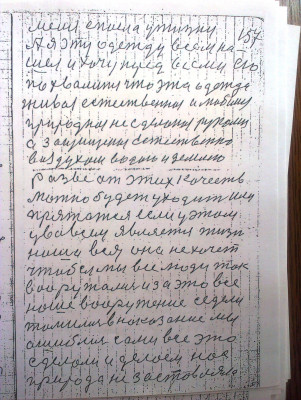 157
А я эту одежду всем на
шел и хочу пред всеми его
похвалити что эта одежда
живая естественная и
природная не сделана руками
а защищена естественно
воздухом водою и землею
разве от этих качеств
можно будет уходит или
прятатся если у этом
у во всем является жизн
наша вся она не хочет
чтобы мы все люди так
вооружались за это все
наше вооружение сидели
томились в наказание мы
ошиблись сами все это
сделали и делаем нас
природа не заставляла